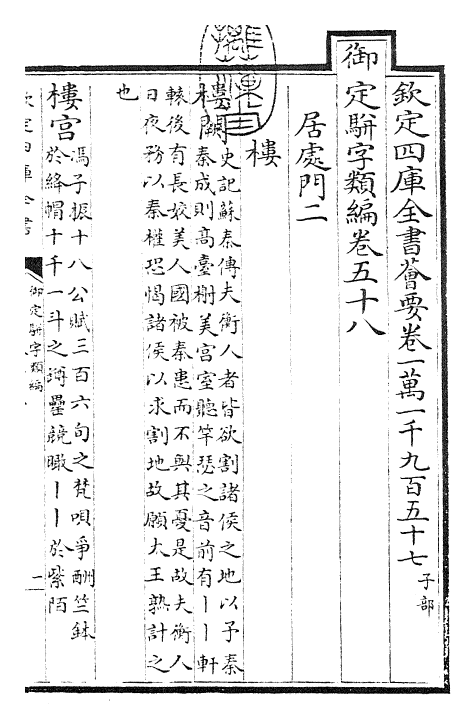 欽定四庫全書薈要卷一萬一千九百五十七 子部
御定駢字類編卷五十八
居處門二
樓
樓闕 史記蘇秦傳夫衡人者皆欲割諸侯之地以予秦
秦成則高臺榭美宮室聽竽瑟之音前有丨丨軒
轅後有長姣美人國被秦患而不與其憂是故夫衡人
日夜務以秦權恐愒諸侯以求割地故願大王熟計之
也
樓宮 馮子振十八公賦三百六旬之梵唄爭酬竺鉢
於絡帽十千一斗之罇罍競瞰丨丨於紫陌
欽定四庫全書
御定駢字類編
一